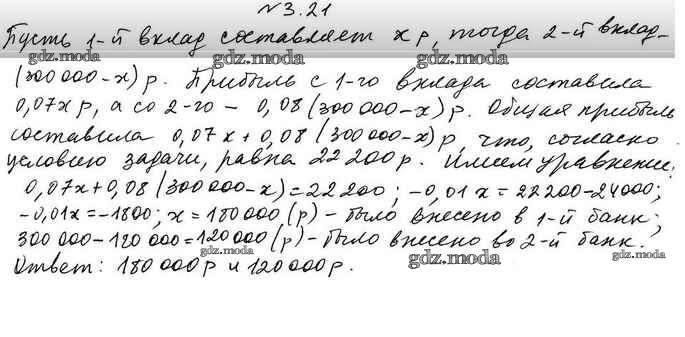 №3.21
Пусть 1-й вклад составляет х р, тогда 2-й вклад-
(300 000-х) р. Прибыль с 1-го вклада составила
0,07х р, а со 2-го - 0,08(300 000-х) р. Общая прибыль
составила 0,07х+0,08(300 000-х) р, что, согласно
условию задачи, равна 22 200 р. Имеем уравнение:
0,07х+0,08(300 000-х)=22 200; -0,01х=22200-24000;
-0,01х=-1800; х=180 000 (р) - было внесено в 1-й банк;
300 000-180 000=120 000 (р) - было внесено во 2-й банк.
Ответ: 180 000 р и 120 000 р.
gdz.moda
gdz.moda
gdz.moda
gdz.moda
gdz.moda
gdz.moda
gdz.moda
gdz.moda
gdz.moda